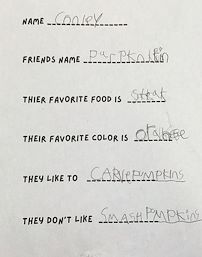 NAME Conley
FRIENDS NAME
THIER FAVORITE FOOD IS
THEIR FAVORITE COLOR IS
THEY LIKE TO PUMPKINS
THEY DON'T LIKE SMASH PMPKINS